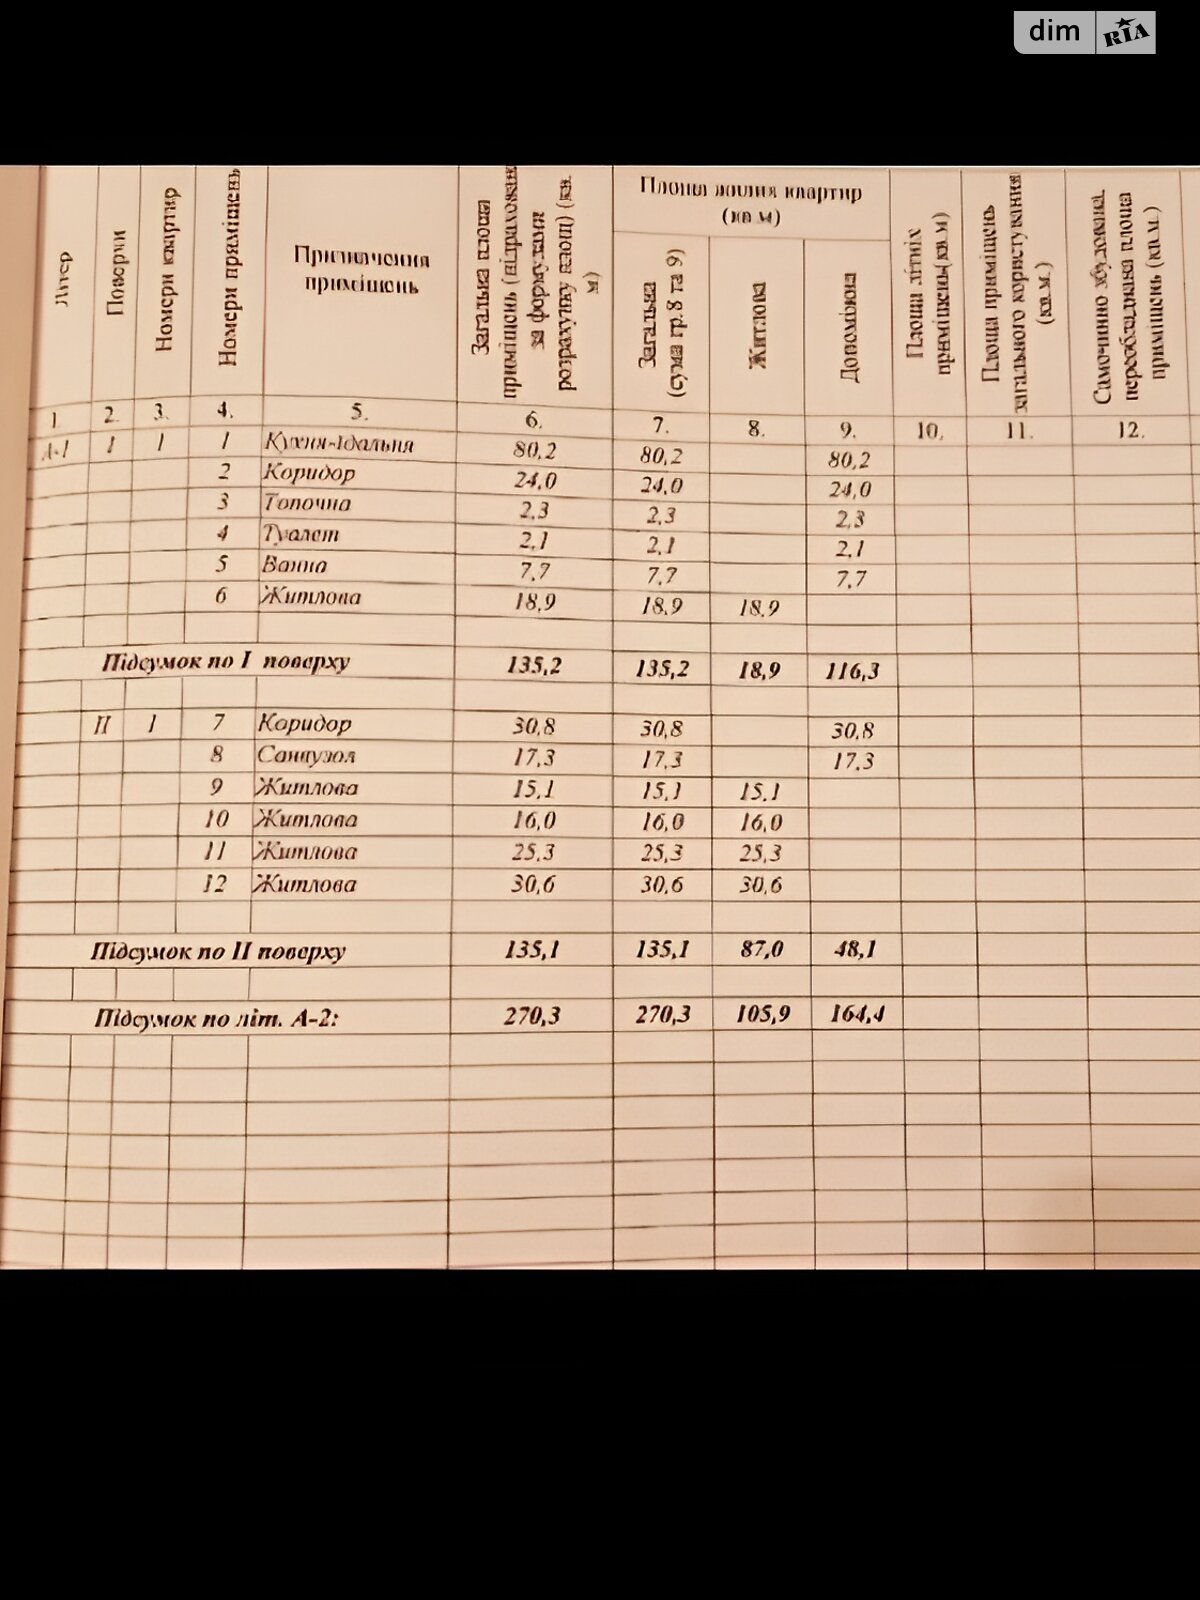 dim RIA
Літер
Поверхи
Номери квартир
Номери приміщень
Призначення
приміщень
Загальна площа
приміщень (відрахована
за формулами
розрахунку площ) (кв.
м)
Площа жилих квартир
(кв.м)
Загальна
(сума гр.8 та 9)
Житлова
Допоміжна
Площа літніх
приміщень(кв.м)
Площа приміщень
загального користування
(кв.м.)
Самочинно збудована,
переобладнана площа
приміщень (кв.м.)
1. 2. 3. 4. 5. 6. 7. 8. 9. 10. 11. 12.
А-1 1 1 1 Кухня-їдальня 80,2 80,2 80,2
2 Коридор 24,0 24,0 24,0
3 Топочна 2,3 2,3 2,3
4 Туалет 2,1 2,1 2,1
5 Ванна 7,7 7,7 7,7
6 Житлова 18,9 18,9 18,9
Підсумок по І поверху 135,2 135,2 18,9 116,3
II 1 7 Коридор 30,8 30,8 30,8
8 Санвузол 17,3 17,3 17,3
9 Житлова 15,1 15,1 15,1
10 Житлова 16,0 16,0 16,0
11 Житлова 25,3 25,3 25,3
12 Житлова 30,6 30,6 30,6
Підсумок по ІІ поверху 135,1 135,1 87,0 48,1
Підсумок по літ. А-2: 270,3 270,3 105,9 164,4